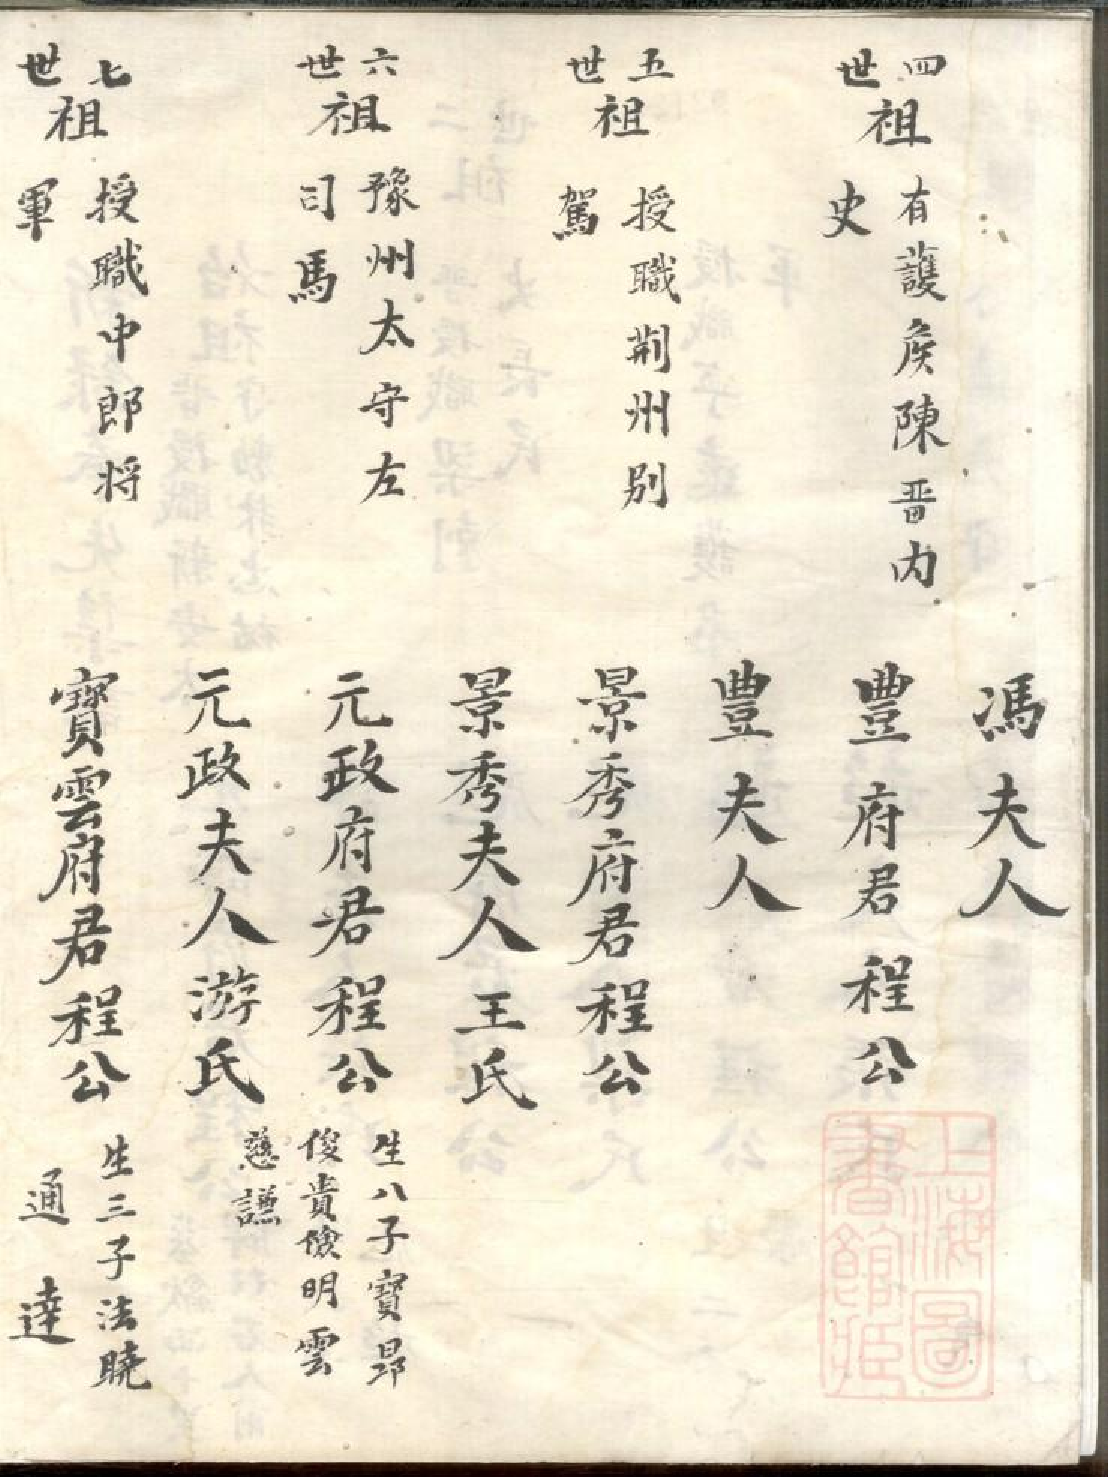 馮夫人
四世祖
有護矦陳晋内
史
豐府君程公
豐夫人
五世祖
授職荆州别
駕
景秀府君程公
景秀夫人王氏
六世祖
豫州太守左
司馬
元政府君程公
生八子寳昻
俊貴儉明雲
慈謙
元政夫人游氏
七世祖
授職中郎将
軍
寳雲府君程公
生三子法曉
通達
上海圖
書館藏